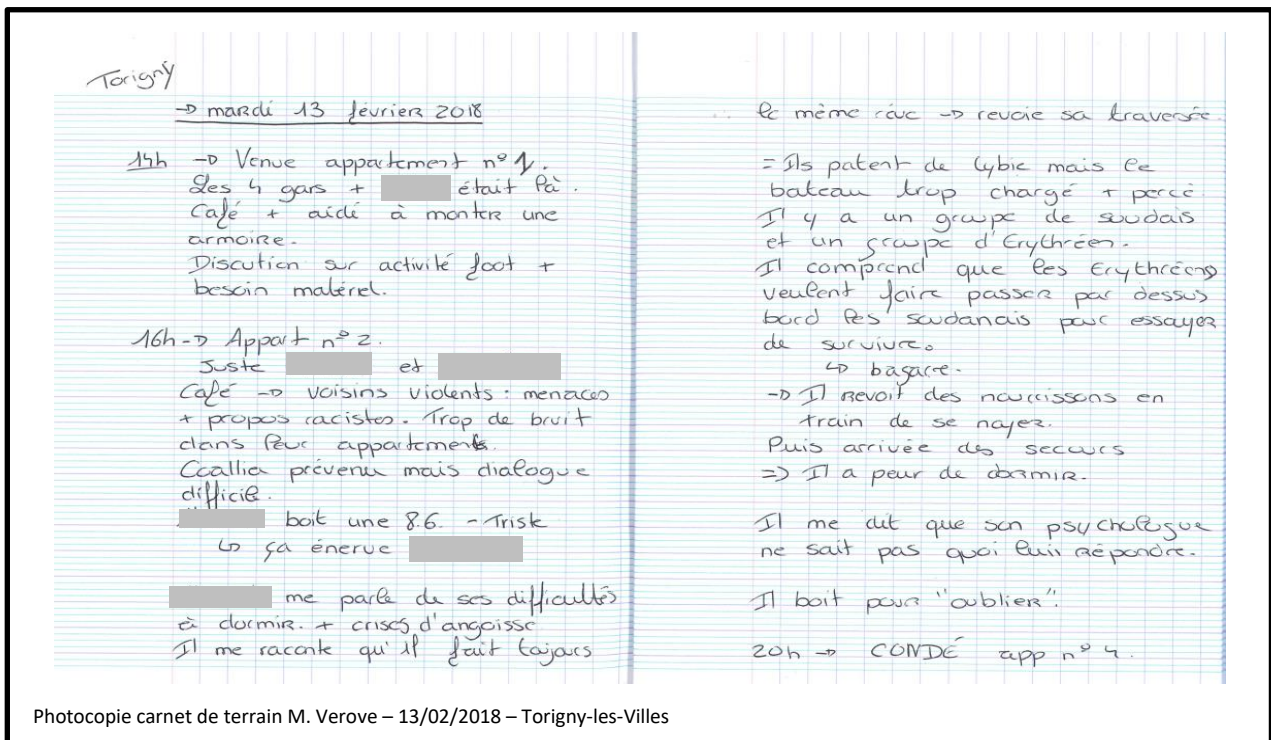 Torigny
→ mardi 13 février 2018
14h → Venue appartement n° 1.
Les 4 gars + était là.
Café + aidé à monter une
armoire.
Discution sur activité foot +
besoin matériel.
16h → Appart n° 2.
Juste et
Café → voisins violents : menaces
+ propos racistes. Trop de bruit
dans leur appartement.
Coallia prévenu mais dialogue
difficile.
boit une 8.6. - Triste
↳ ça énerve
me parle de ses difficultés
à dormir. + crises d'angoisse
Il me raconte qu'il fait toujours
le même rêve → revoie sa traversée.
= Ils patent de Lybie mais le
bateau trop chargé + percé.
Il y a un groupe de soudais
et un groupe d'Erythréen.
Il comprend que les Erythréens
veulent faire passer par dessus
bord les soudanais pour essayer
de survivre.
↳ bagarre.
→ Il Revoit des nourrissons en
train de se noyer.
Puis arrivée des secours
=> Il a peur de dormir.
Il me dit que son psychologue
ne sait pas quoi luis répondre.
Il boit pour "oublier".
20h → CONDÉ app n° 4.
Photocopie carnet de terrain M. Verove – 13/02/2018 – Torigny-les-Villes